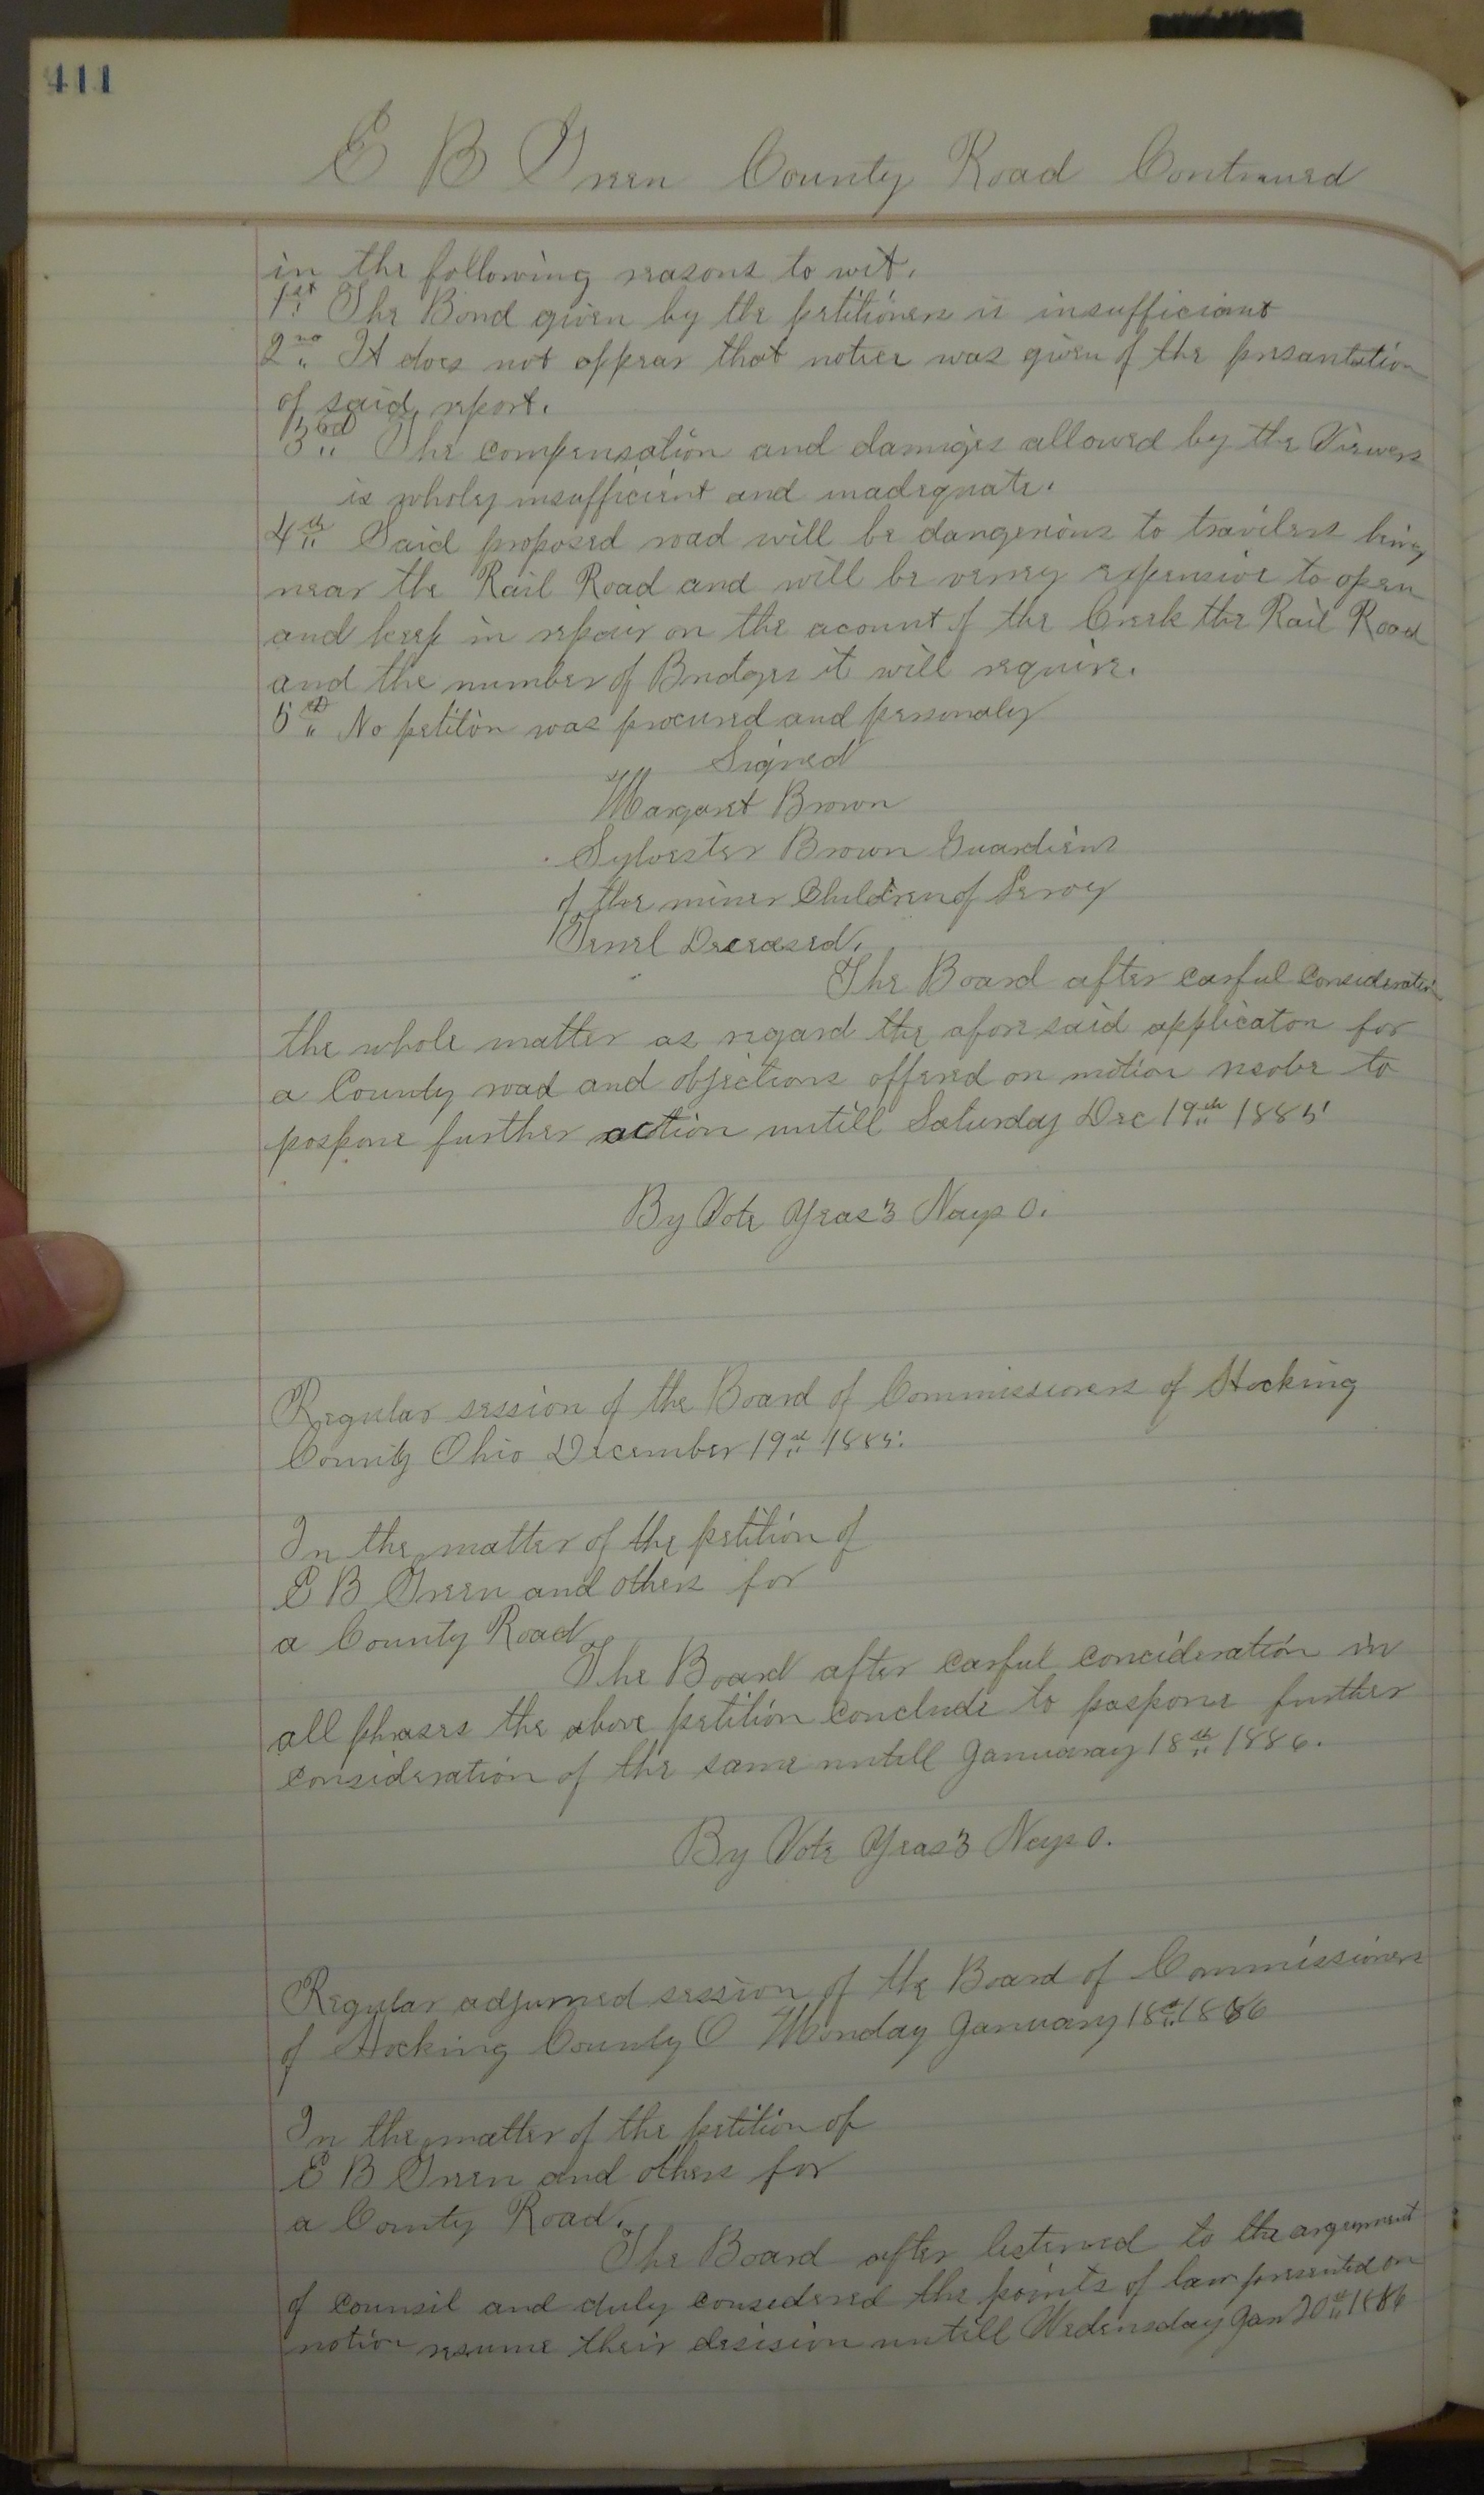 411
E B Green County Road Continued
in the following reasons to wit.
1st The Bond given by the petitioners is insufficiant
2nd It does not appear that notice was given of the presantation
of said report.
3rd The compensation and damiges allowed by the Viewers
is wholey insufficient and inadequate.
4th Said proposed road will be dangerious to travilers being
near the Rail Road and will be verrey expensive to open
and keep in repair on the acount of the Creek the Rail Road
and the number of Bridges it will require.
5th No petition was procured and personaley
Signed
Margaret Brown
Sylvester Brown Guardiens
of the miner Children of Leroy
Deceased.
The Board after carful consideration
the whole matter as regard the afore said applicaton for
a County road and objections offered on motion resolve to
pospone further action untill Saturday Dec 19th 1885
By Vote Yeas 3 Nays 0.
Regular session of the Board of Commissioners of Hocking
County Ohio December 19th 1885.
In the matter of the petition of
E B Green and others for
a County Road
The Board after carful concideration in
all phases the above petition conclude to pospone further
consideration of the same untill Januaray 18th 1886.
By Vote Yeas 3 Nays 0.
Regular adjurned session of the Board of Commissioners
of Hocking County O Monday January 18th 1886
In the matter of the petition of
E B Green and others for
a County Road.
The Board after listened to the argement
of counsil and duly considered the points of law presented on
motion resume their desision untill Wedensday Jan 20th 1886